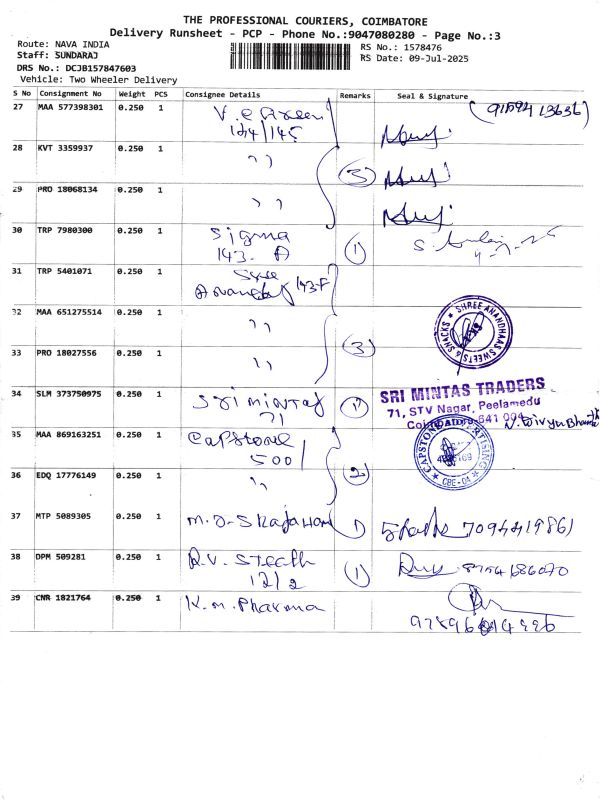 THE PROFESSIONAL COURIERS, COIMBATORE
Delivery Runsheet - PCP - Phone No.:9047080280 - Page No.:3
Route: NAVA INDIA
Staff: SUNDARAJ
DRS No.: DCJB157847603
Vehicle: Two Wheeler Delivery
RS No.: 1578476
RS Date: 09-Jul-2025
S No Consignment No Weight PCS Consignee Details Remarks Seal & Signature
27 MAA 577398301 0.250 1
28 KVT 3359937 0.250 1 " (3)
29 PRO 18068134 0.250 1 "
30 TRP 7980300 0.250 1 Sigma (1)
143- A
31 TRP 5401071 0.250 1 Shree
143-F
32 MAA 651275514 0.250 1 "
SHREE ANANDHAAS SWEETS & SNACKS
33 PRO 18027556 0.250 1 " (3)
34 SLM 373750975 0.250 1 Sri mintas (1)
71
SRI MINTAS TRADERS
71, STV Nagar, Peelamedu
Coimbatore-641 004
35 MAA 869163251 0.250 1 Capstone
500/
CAPSTONE ADVERTISING
CBE-04
36 EDQ 17776149 0.250 1 " (2)
37 MTP 5089305 0.250 1 (1) 7094419861
38 DPM 509281 0.250 1 R.V. Stealh (1)
12/2
39 CNR 1821764 0.250 1 K.m. Pharma